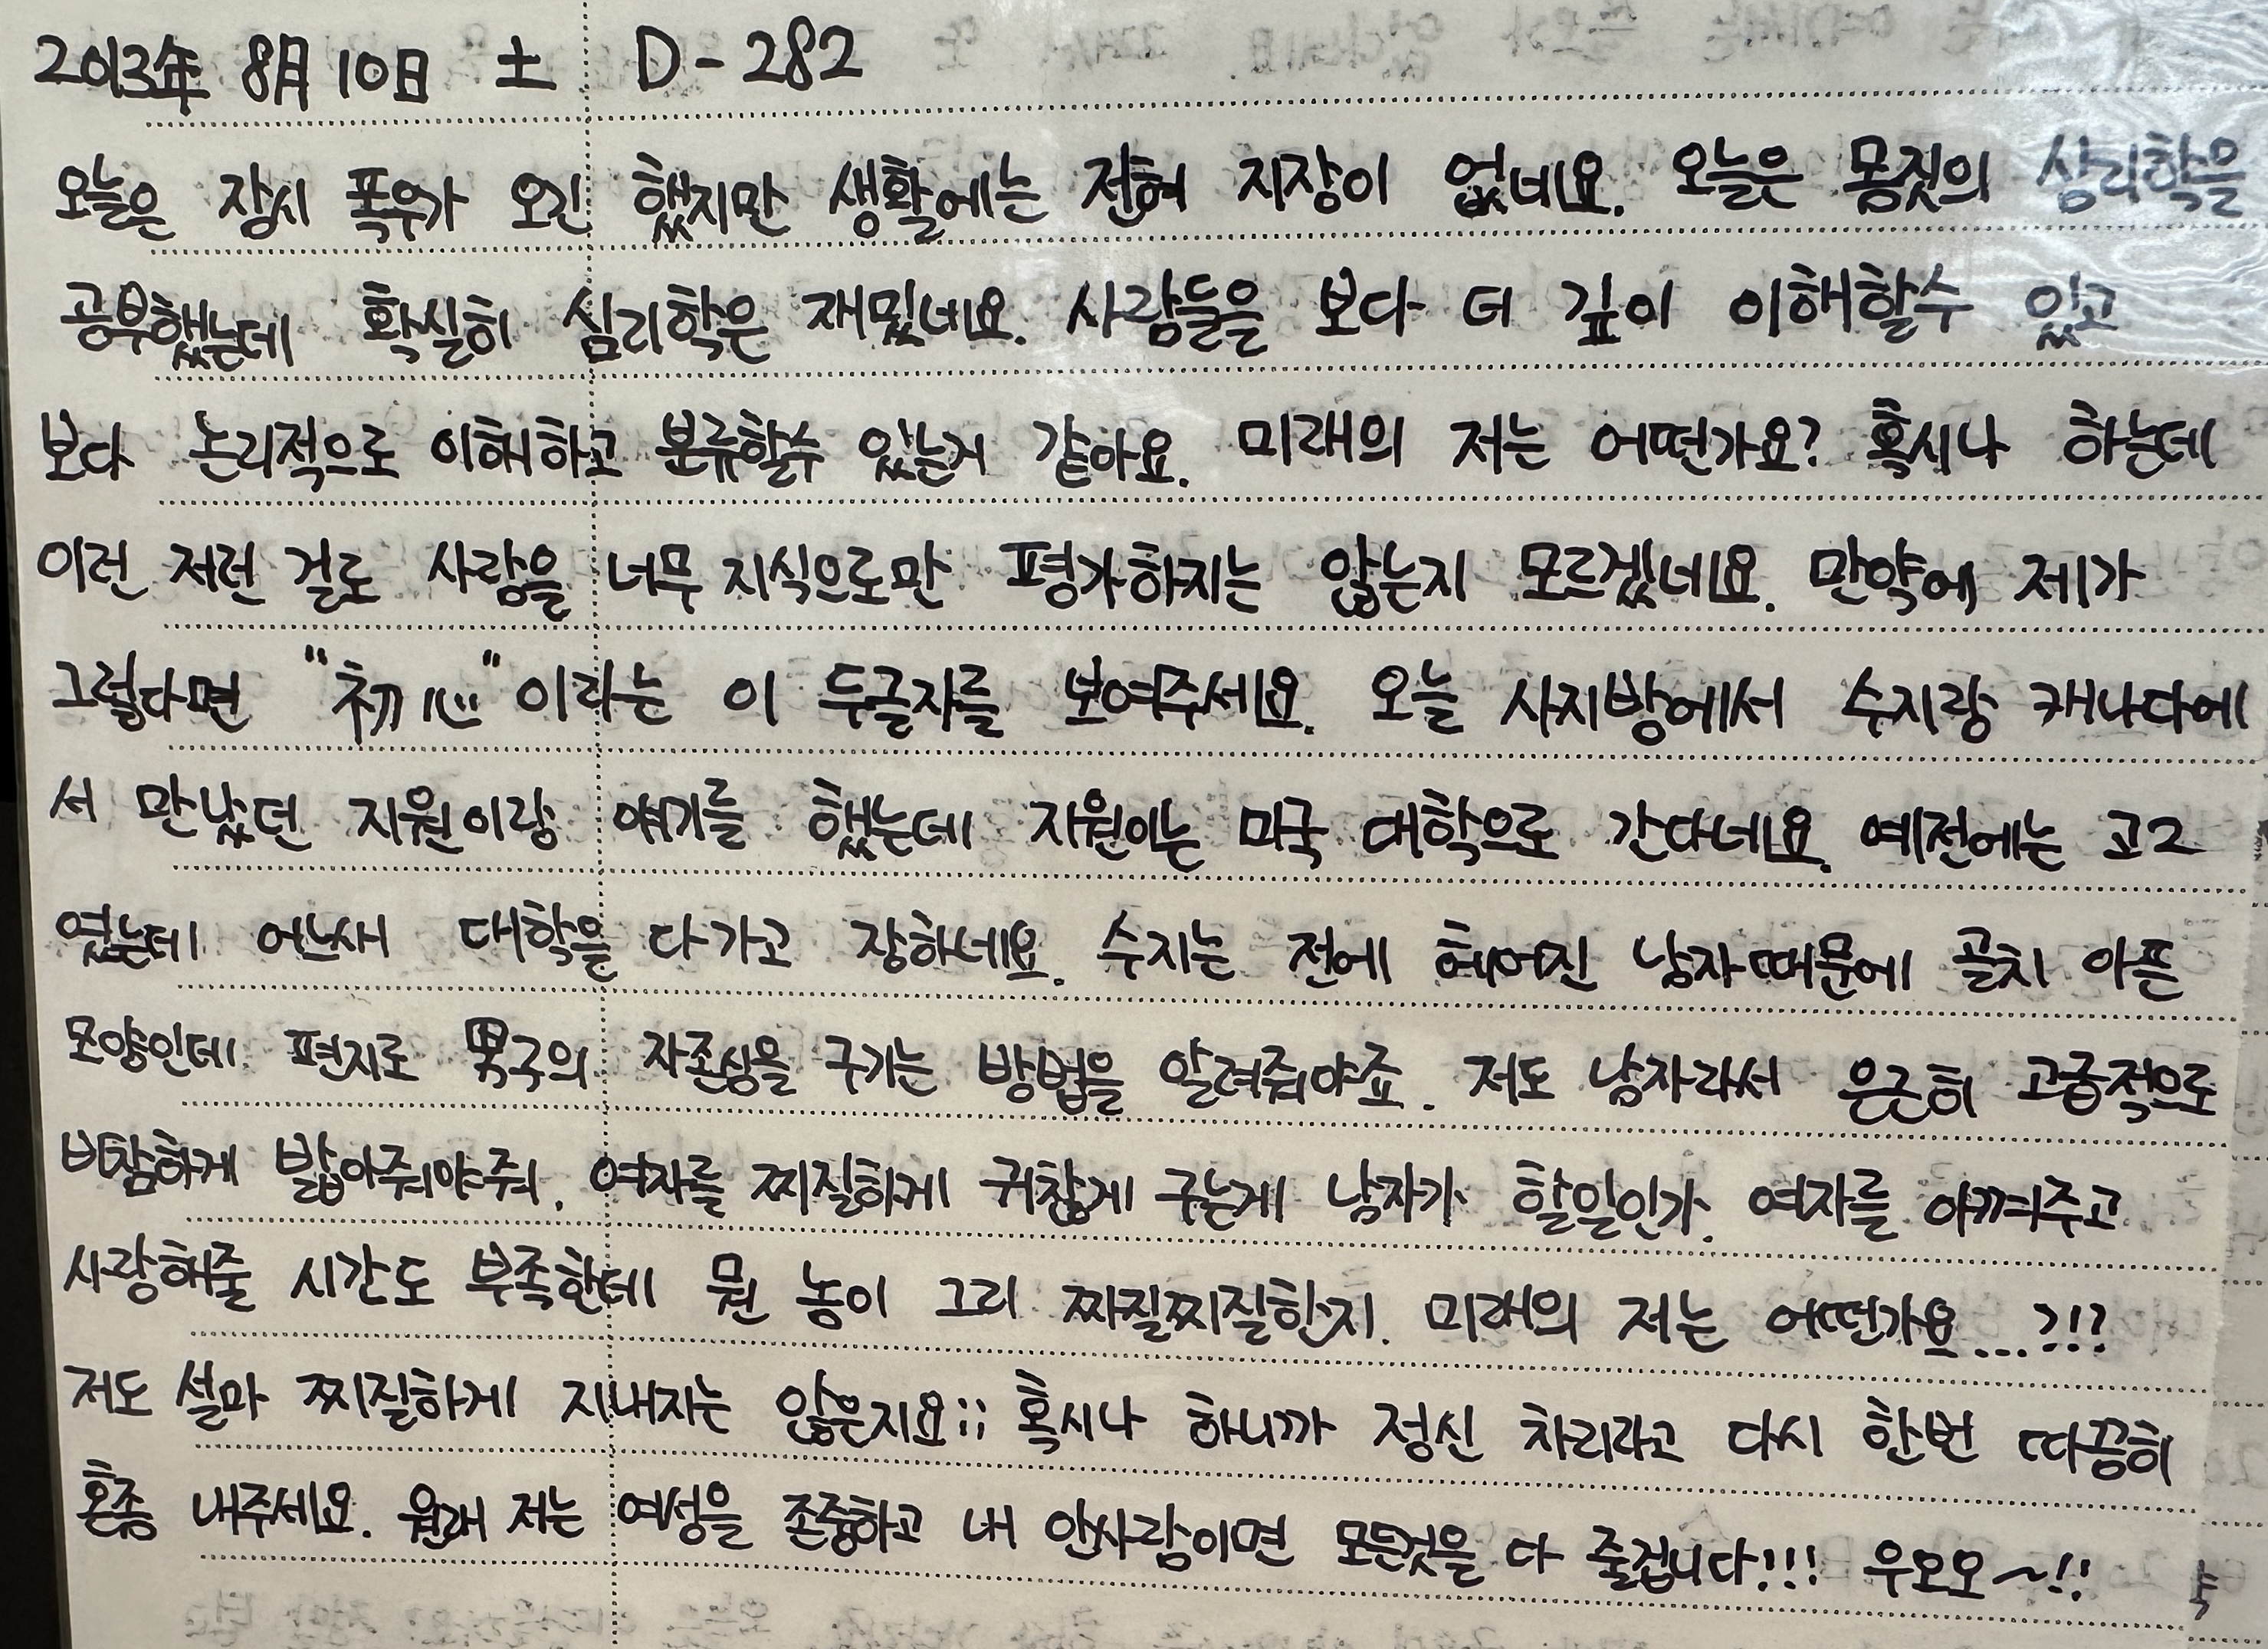 2013年 8月 10日 土 D-282
오늘은 잠시 폭우가 오긴 했지만 생활에는 전혀 지장이 없네요. 오늘은 몸짓의 심리학을
공부했는데 확실히 심리학은 재밌네요. 사람들을 보다 더 깊이 이해할수 있고
보다 논리적으로 이해하고 분류할수 있는거 같아요. 미래의 저는 어떤가요? 혹시나 하는데
이런 저런 걸로 사람을 너무 지식으로만 평가하지는 않는지 모르겠네요. 만약에 제가
그렇다면 "初心"이라는 이 두글자를 보여주세요. 오늘 사지방에서 수지랑 캐나다에
서 만났던 지원이랑 얘기를 했는데 지원이는 미국 대학으로 간다네요. 예전에는 고2
였는데 어느새 대학을 다가고 장하네요. 수지는 전에 헤어진 남자때문에 골치 아픈
모양인데 편지로 男구의 자존심을 구기는 방법을 알려줘야죠. 저도 남자라서 은근히 고궁적으로
비참하게 밟아줘야줘. 여자를 찌질하게 귀찮게 구는게 남자가 할일인가. 여자를 아껴주고
사랑해줄 시간도 부족한데 뭔 놈이 그리 찌질찌질한지. 미래의 저는 어떤가요...?!?
저도 설마 찌질하게 지내지는 않은지요;; 혹시나 하니까 정신 차리라고 다시 한번 따끔히
혼쭘 내주세요. 원래 저는 여성을 존중하고 내 안사람이면 모든것을 다 줄겁니다!!! 우오오~!!